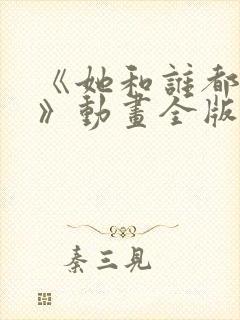 《她和誰都
》動畫全版
秦三見